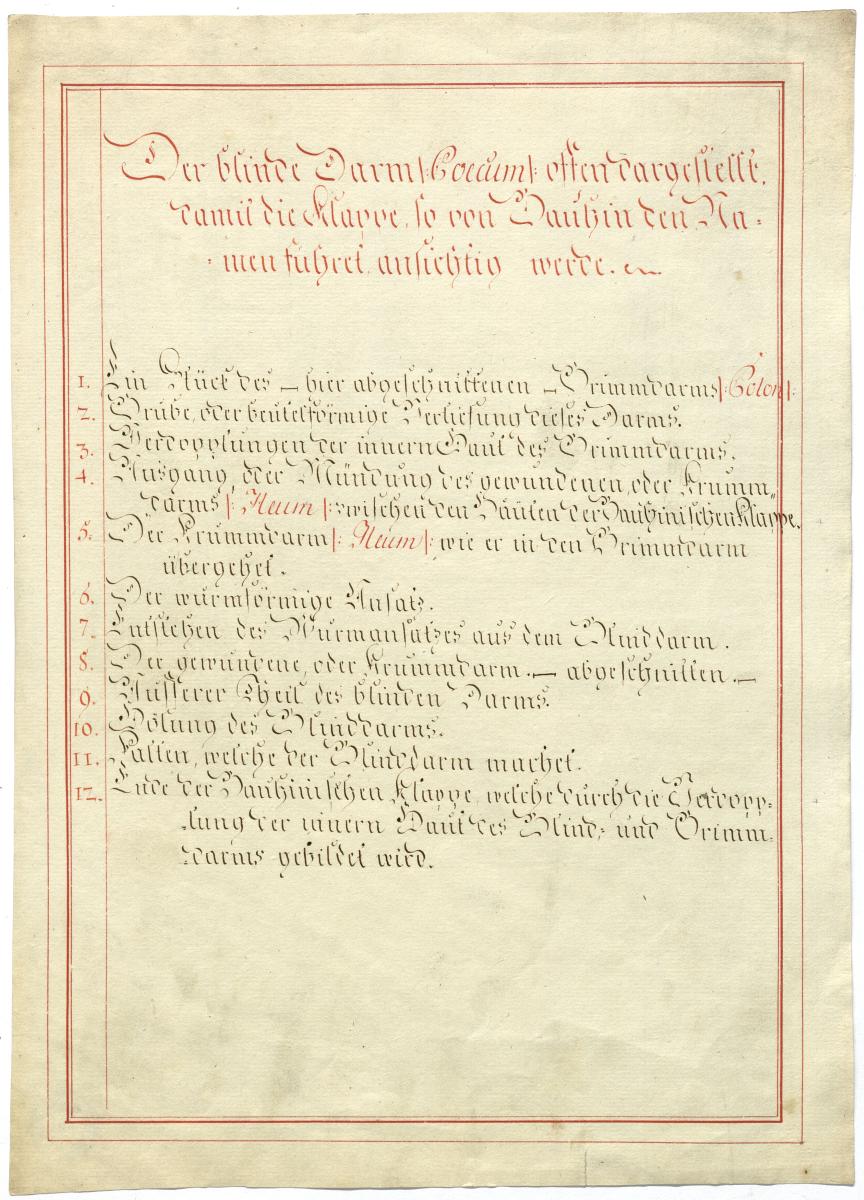 Der blinde Darm |: Coecum :| offen dargestellt,
damit die Klappe, so von Bauhin den Na=
=men führet, ansichtig werde.
1. Ein Stück des – hier abgeschnittenen – Grimmdarms |: Colon :|
2. Grube, oder beutelförmige Vertiefung dieses Darms.
3. Verdopplungen der innern Haut des Grimmdarms.
4. Ausgang, oder Mündung des gewundenen, oder Krumm=
darms |: Ileum :| zwischen den Häuten der Bauhinischen Klappe.
5. Der Krummdarm |: Ileum :| wie er in den Grimmdarm
übergehet.
6. Der wurmförmige Ansatz.
7. Entstehen des Wurmansatzes aus dem Blinddarm.
8. Der gewundene, oder Krummdarm. – abgeschnitten. –
9. Äusserer Theil des blinden Darms.
10. Hölung des Blinddarms.
11. Falten, welche der Blinddarm machet.
12. Ende der Bauhinischen Klappe, welche durch die Verdopp=
=lung der innern Haut des Blind= und Grimm=
=darms gebildet wird.